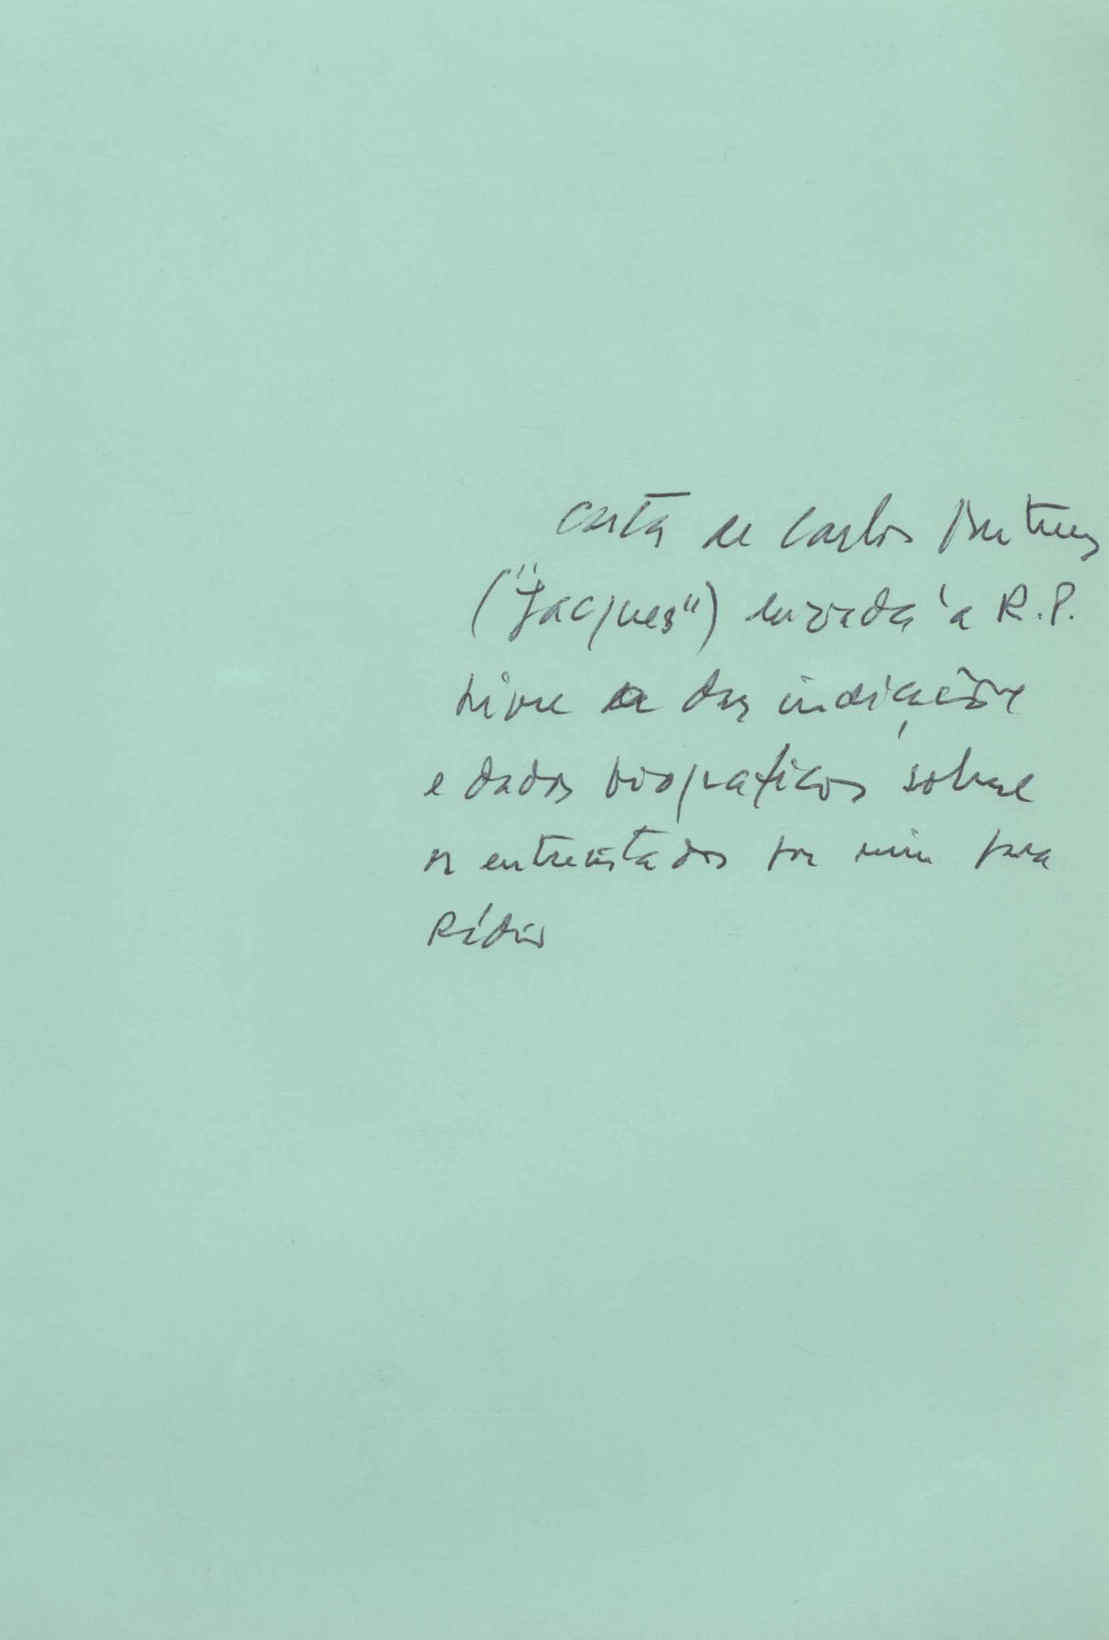 Carta de Carlos Antunes
("Jacques") enviada à R.P.
Livre a dar indicações
e dados biograficos sobre
os entrevistados por mim para
Rádio